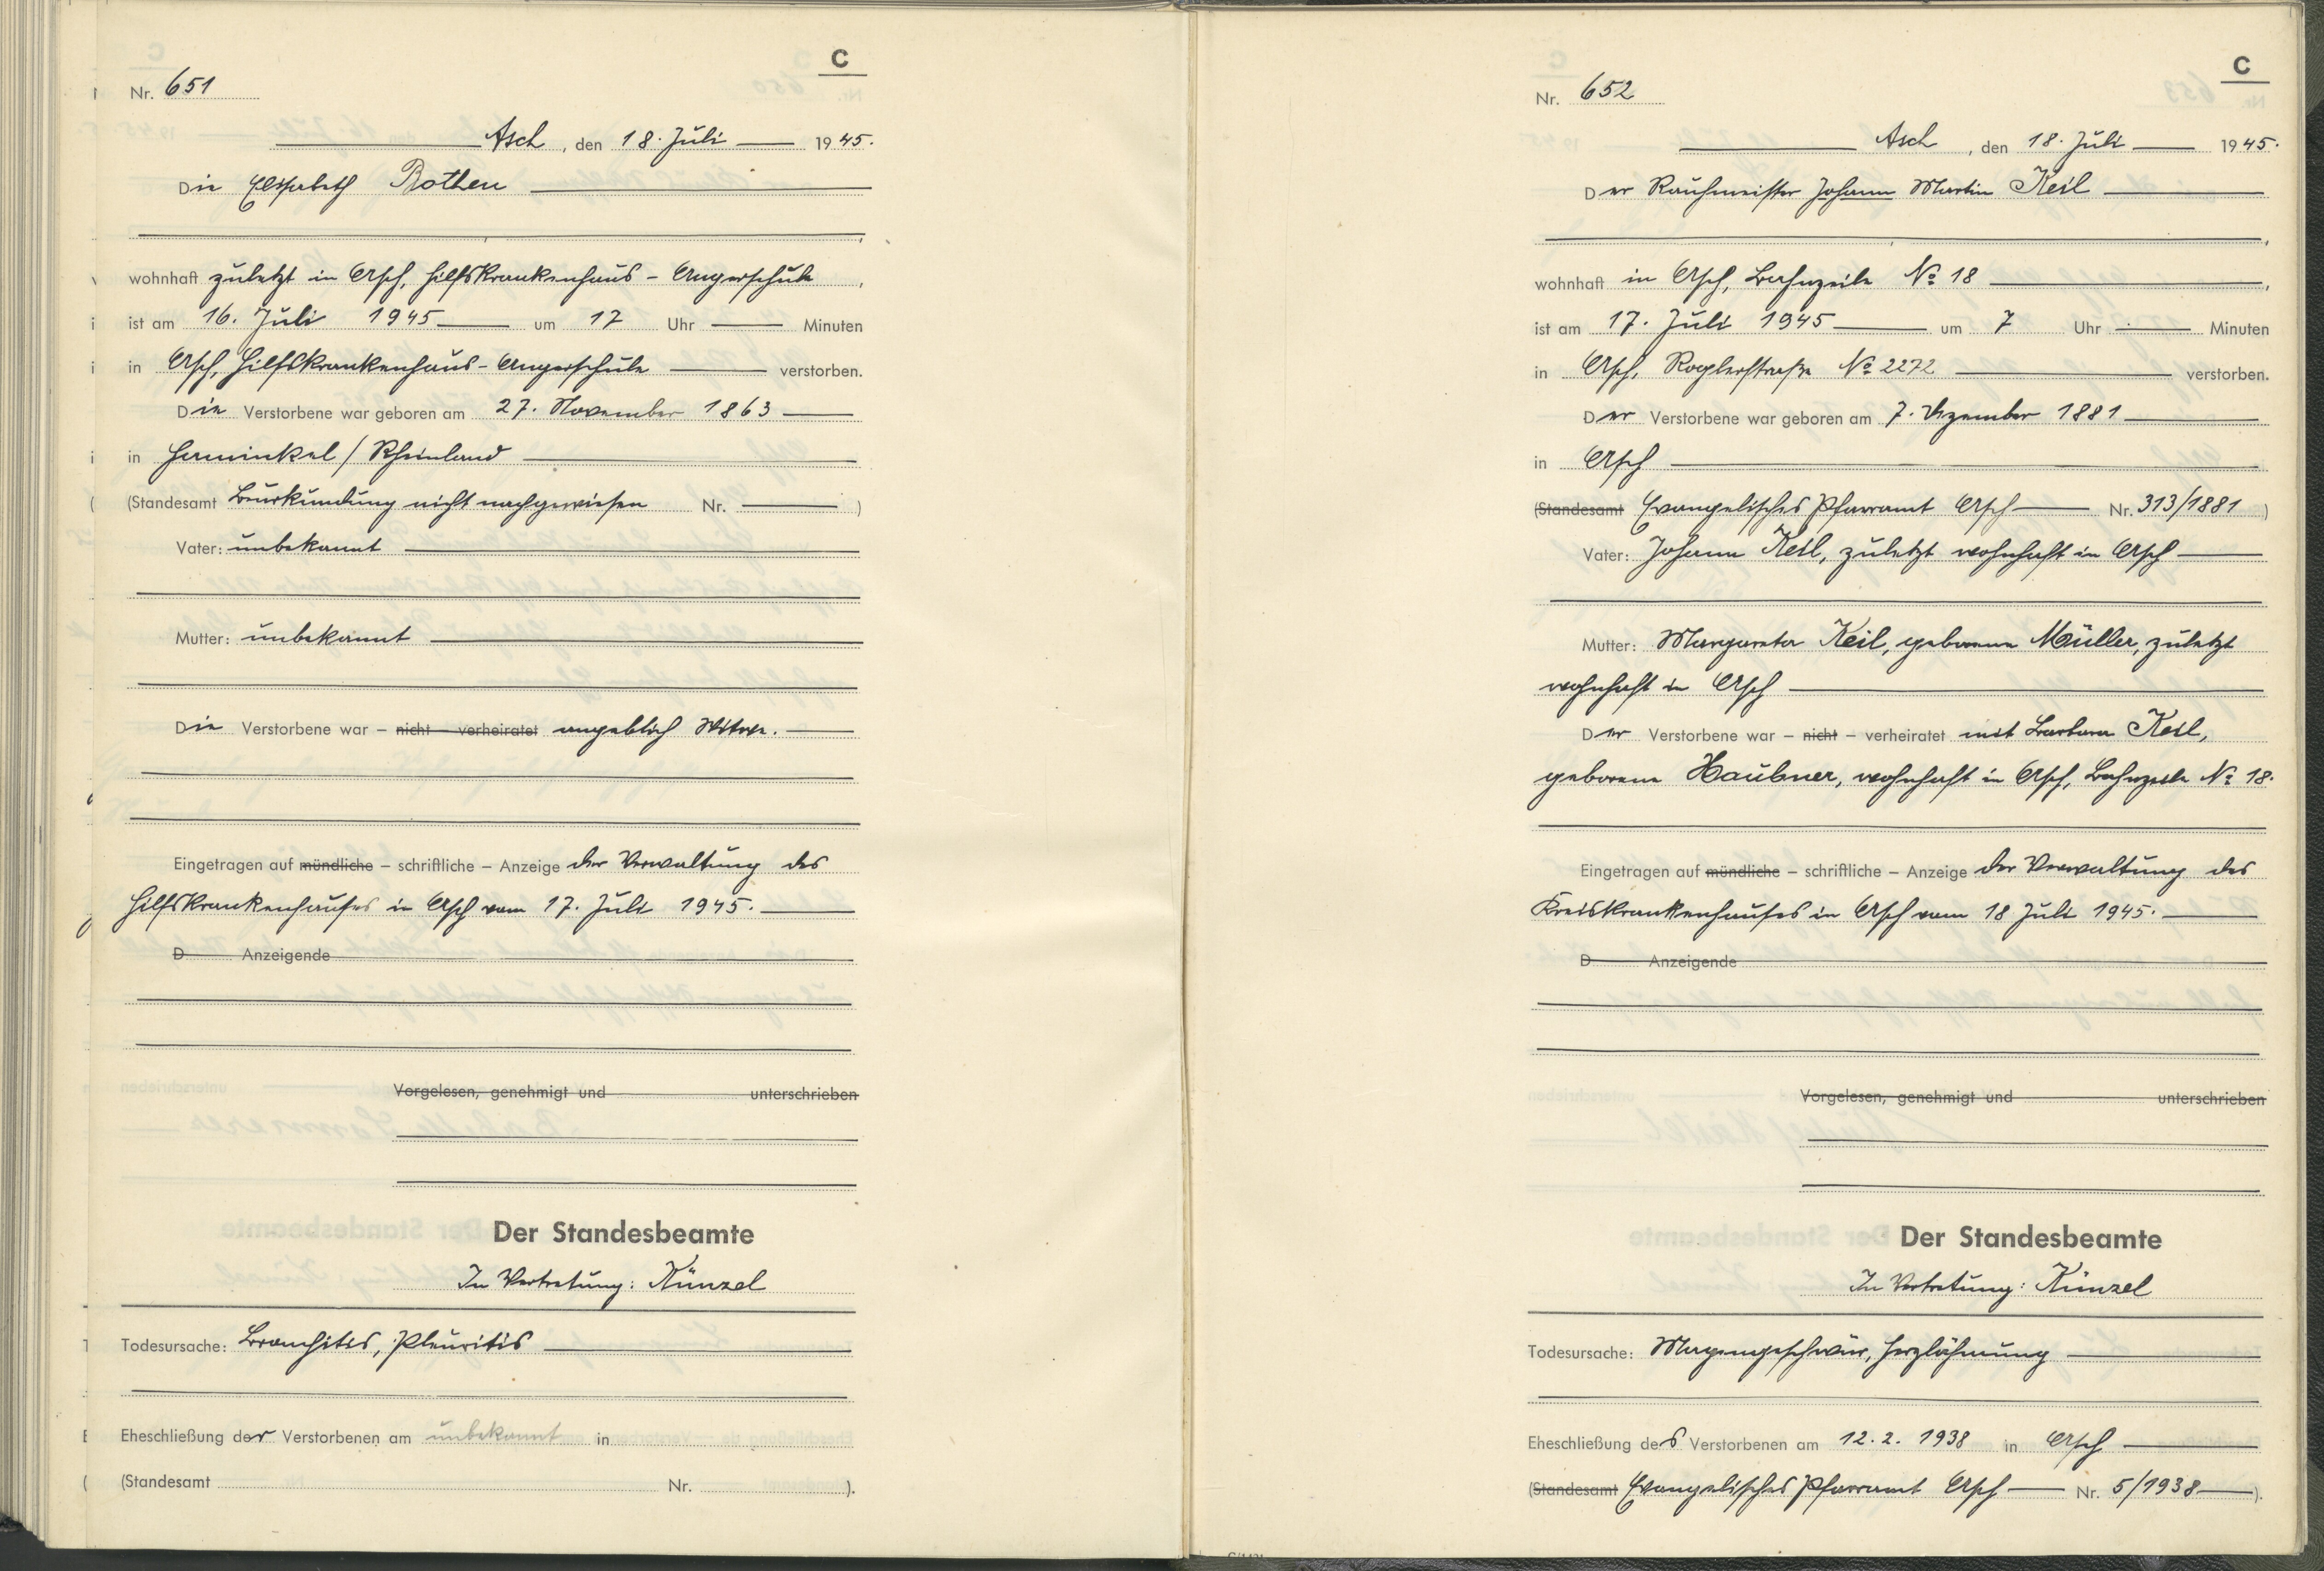 C
Nr. 651
Asch, den 18. Juli 1945.
Die Elisabeth Rothen
wohnhaft zuletzt in Asch, Hilfskrankenhaus - Angerschule,
ist am 16. Juli 1945 um 17 Uhr Minuten
in Asch, Hilfskrankenhaus - Angerschule verstorben.
Die Verstorbene war geboren am 27. November 1863
in / Rheinland
(Standesamt Beurkundung nicht nachgewiesen Nr. )
Vater: unbekannt
Mutter: unbekannt
Die Verstorbene war – nicht – verheiratet angeblich Witwe.
Eingetragen auf mündliche – schriftliche – Anzeige der Verwaltung des
Hilfskrankenhauses in Asch vom 17. Juli 1945.
D Anzeigende
Vorgelesen, genehmigt und unterschrieben
Der Standesbeamte
In Vertretung: Künzel
Todesursache: Bronchitis, Pleuritis
Eheschließung der Verstorbenen am unbekannt in
(Standesamt Nr. ).
C
Nr. 652
Asch, den 18. Juli 1945.
Der Rauhmeister Johann Martin Keil
wohnhaft in Asch, Bahnzeile No 18,
ist am 17. Juli 1945 um 7 Uhr Minuten
in Asch, Roglerstraße No 2272 verstorben.
Der Verstorbene war geboren am 7. Dezember 1881
in Asch
(Standesamt Evangelisches Pfarramt Asch Nr. 313/1881)
Vater: Johann Keil, zuletzt wohnhaft in Asch
Mutter: Margareta Keil, geborene Müller, zuletzt
wohnhaft in Asch
Der Verstorbene war – nicht – verheiratet mit Barbara Keil,
geborene Haubner, wohnhaft in Asch, Bahnzeile No 18.
Eingetragen auf mündliche – schriftliche – Anzeige der Verwaltung des
Kreiskrankenhauses in Asch vom 18 Juli 1945.
D Anzeigende
Vorgelesen, genehmigt und unterschrieben
Der Standesbeamte
In Vertretung: Künzel
Todesursache: Magengeschwür, Herzlähmung
Eheschließung des Verstorbenen am 12.2.1938 in Asch
(Standesamt Evangelisches Pfarramt Asch Nr. 5/1938).